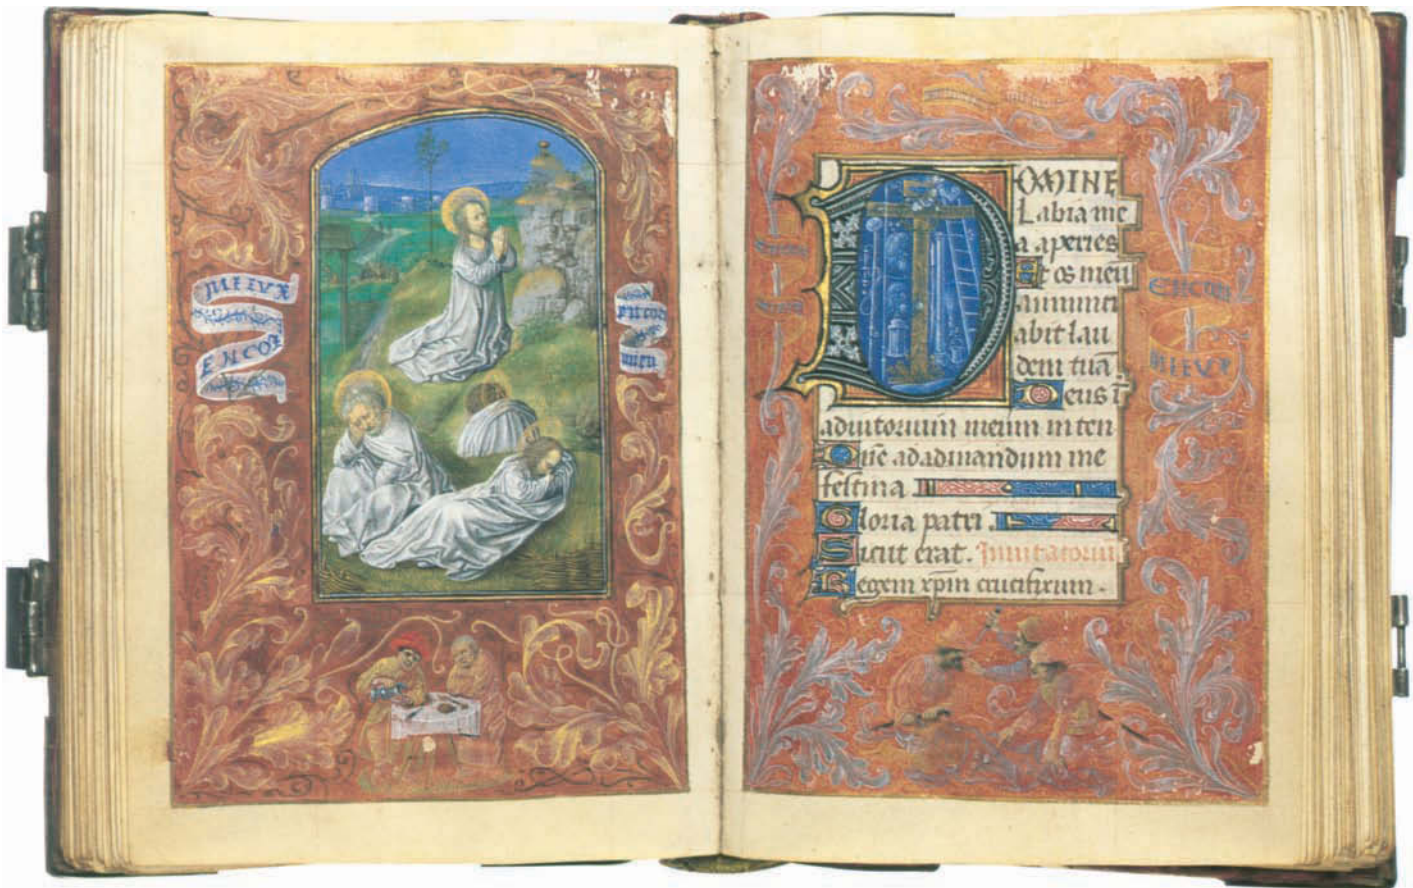 MIEVX
ENCOR
encor
mieu
DOMINE
Labia me
a aperies
Et os meū
annunti
abit lau
dem tuā.
Deus ī
adiutorium meum in ten
Dñe ad adiuuandum me
festina.
Gloria patri.
Sicut erat. Inuitatoriū
Regem xp̄m crucifixum.
ENCOR
MIEVX